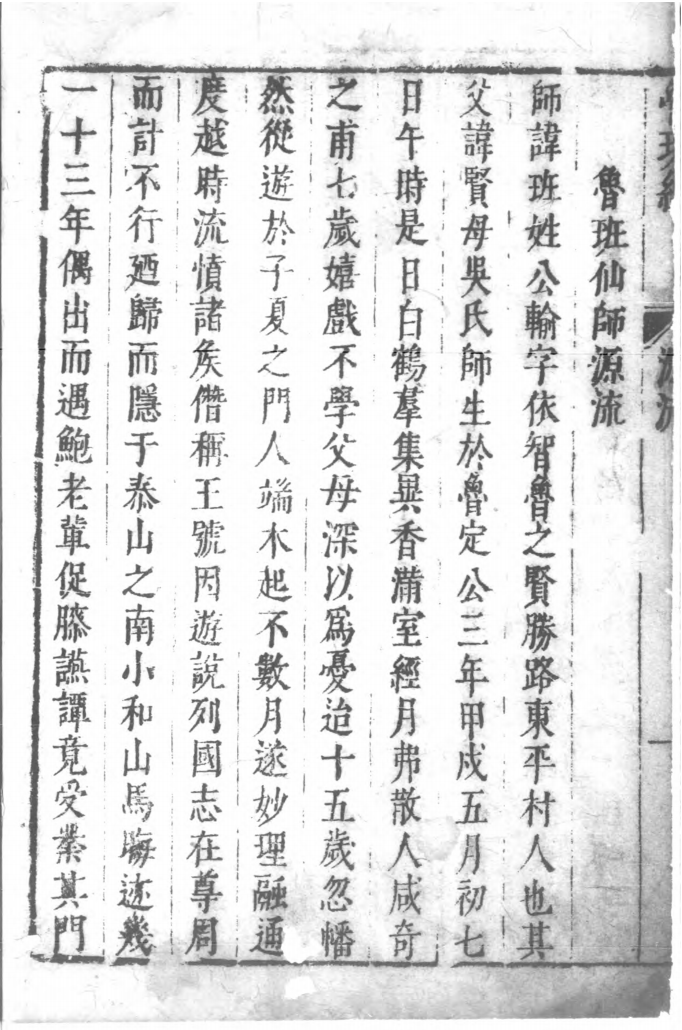 魯班仙師源流
師諱班姓公輸字依智魯之賢勝路東平村人也其
父諱賢母吳氏師生於魯定公三年甲戌五月初七
日午時是日白鶴羣集異香滿室經月弗散人咸奇
之甫七歲嬉戲不學父母深以爲憂迨十五歲忽幡
然從遊於子夏之門人端木起不數月遂妙理融通
度越時流憤諸矦僭稱王號因遊說列國志在尊周
而計不行廼歸而隱于泰山之南小和山焉晦迹幾
一十三年偶出而遇鮑老軰促膝讌譚竟受業其門